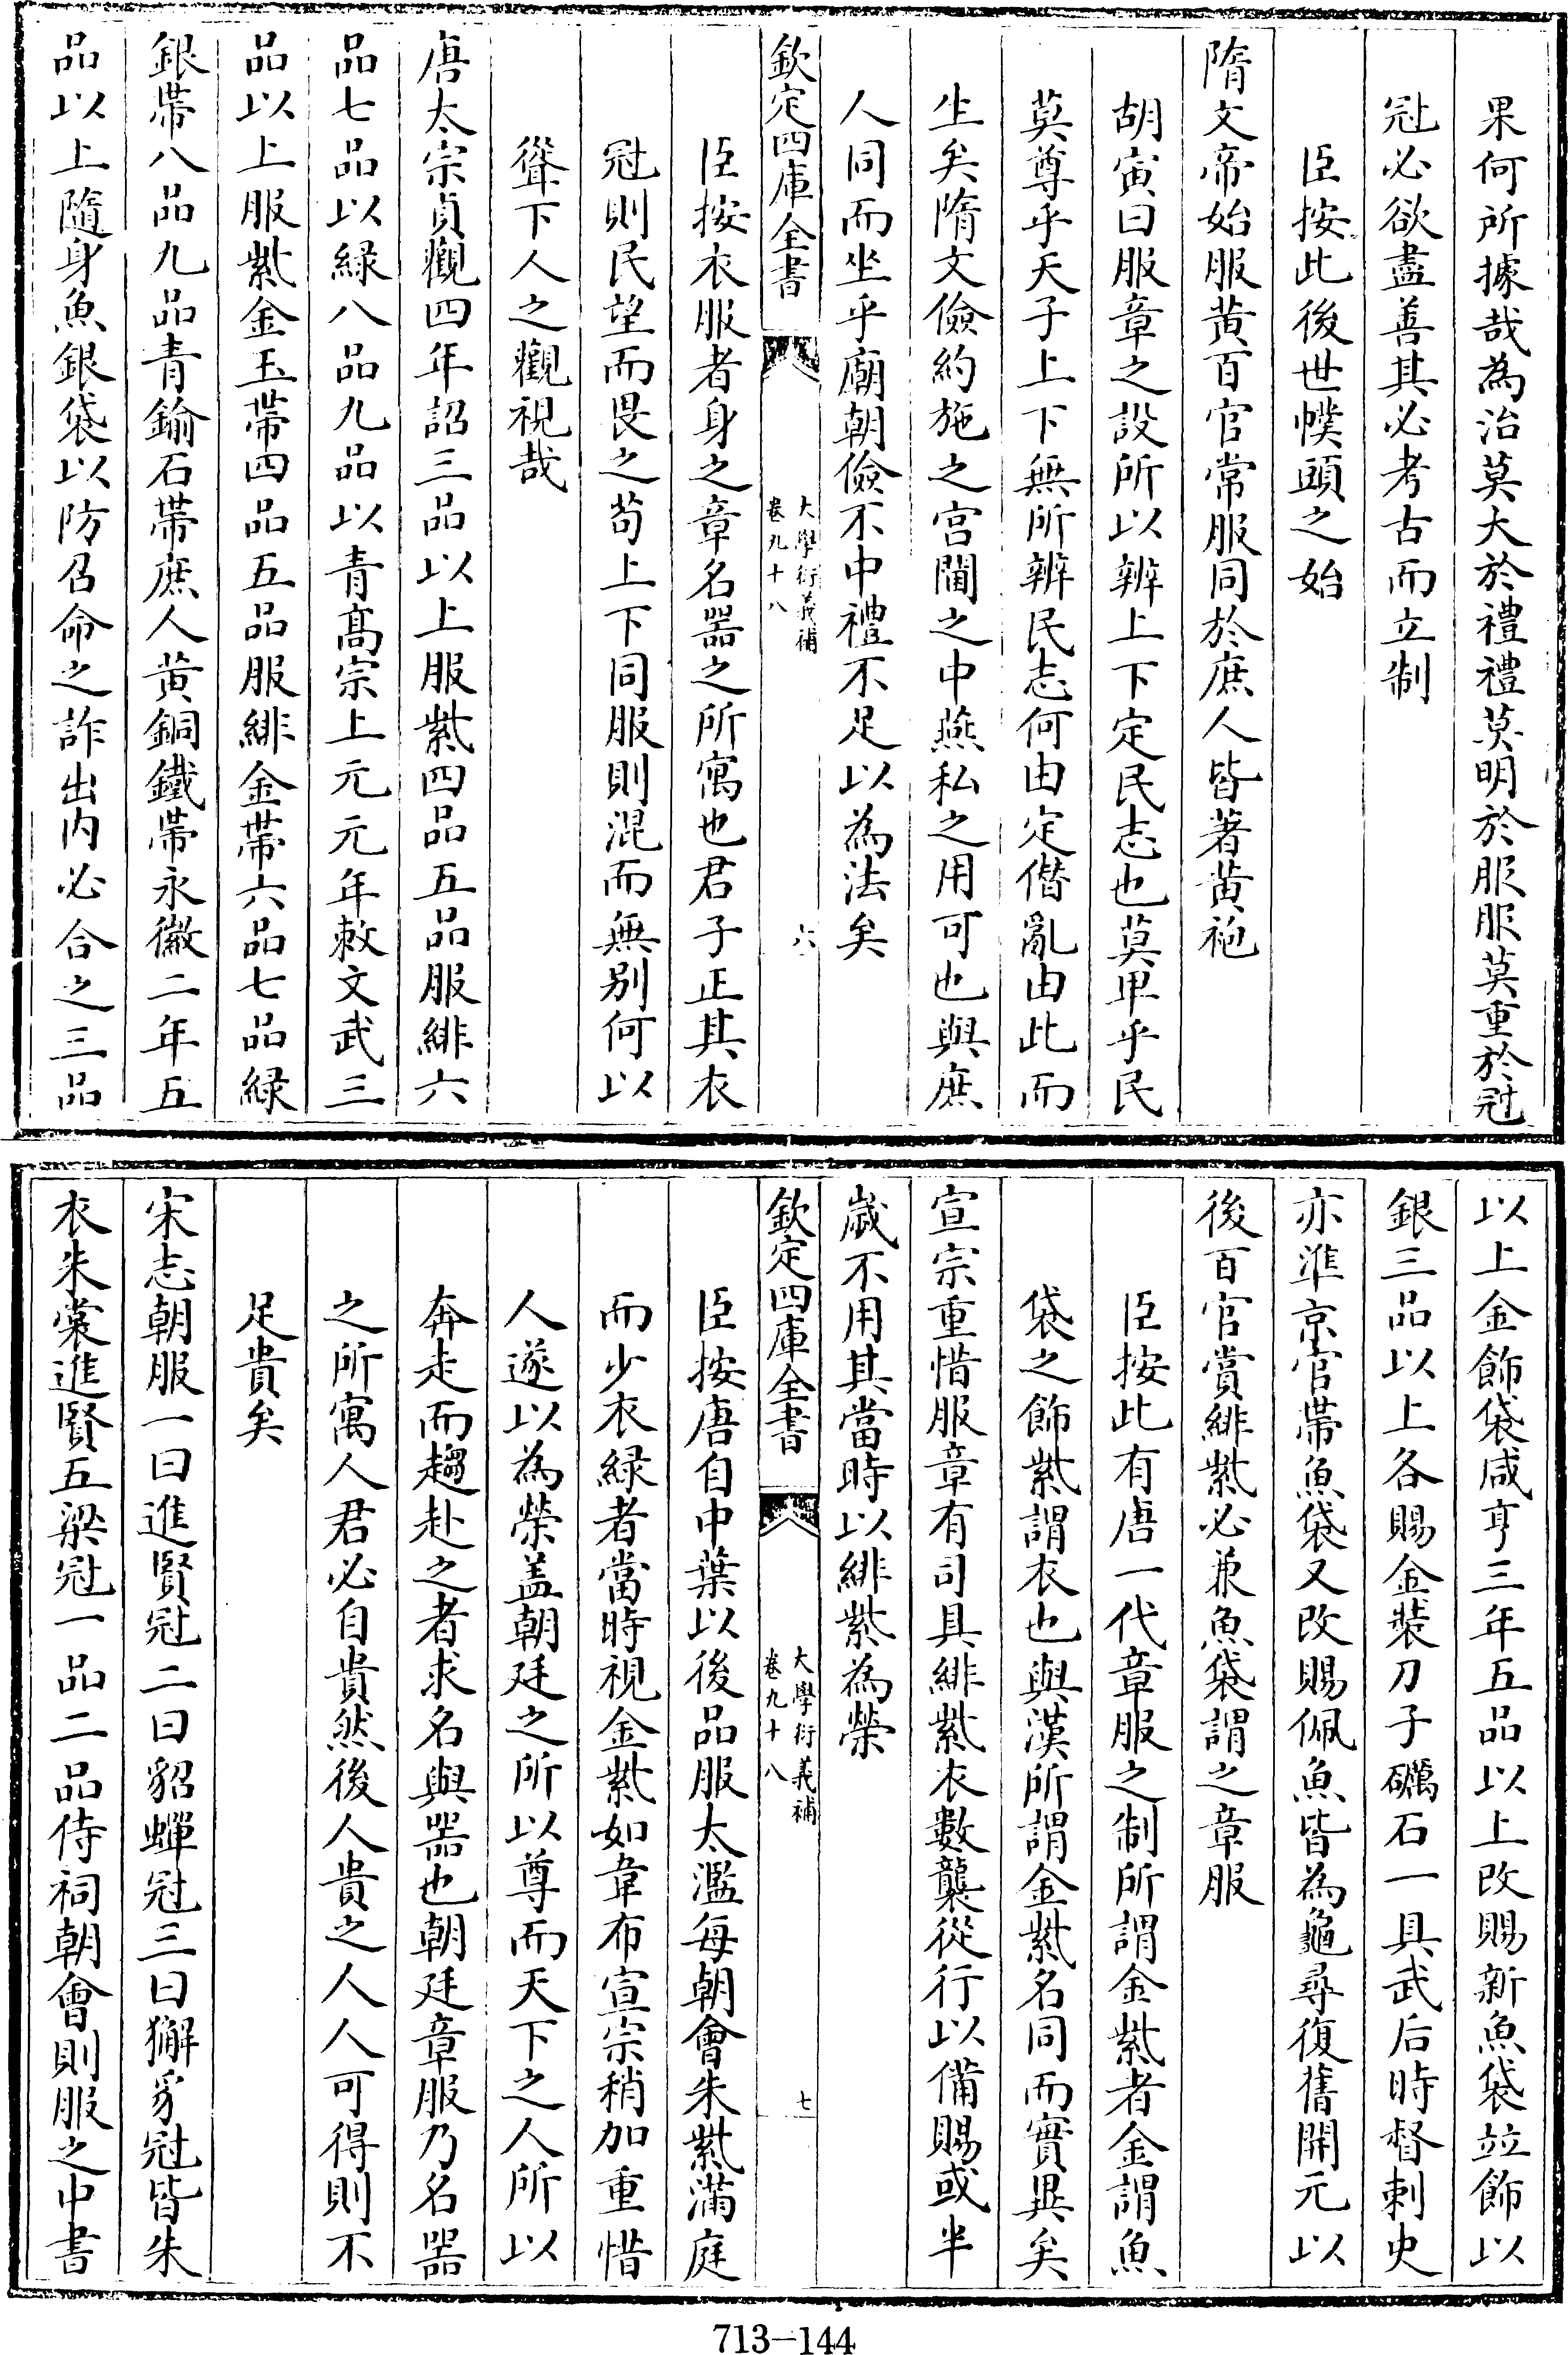 果何所據哉為治莫大於禮禮莫明於服服莫重於冠
冠必欲盡善其必考古而立制
臣按此後世幞頭之始
隋文帝始服黄百官常服同於庶人皆著黄袍
胡寅曰服章之設所以辨上下定民志也莫卑乎民
莫尊乎天子上下無所辨民志何由定僭亂由此而
生矣隋文儉約施之宫閫之中燕私之用可也與庶
人同而坐乎廟朝儉不中禮不足以為法矣
欽定四庫全書
大學衍義補
卷九十八
六
臣按衣服者身之章名器之所寓也君子正其衣
冠則民望而畏之苟上下同服則混而無别何以
聳下人之觀視哉
唐太宗貞觀四年詔三品以上服紫四品五品服緋六
品七品以緑八品九品以青髙宗上元元年敕文武三
品以上服紫金玉帶四品五品服緋金帶六品七品緑
銀帶八品九品青鍮石帶庶人黄銅鐵帶永徽二年五
品以上隨身魚銀袋以防召命之詐出内必合之三品
以上金飾袋咸亨三年五品以上改賜新魚袋竝飾以
銀三品以上各賜金裝刀子礪石一具武后時督刺史
亦準京官帶魚袋又改賜佩魚皆為龜尋復舊開元以
後百官賞緋紫必兼魚袋謂之章服
臣按此有唐一代章服之制所謂金紫者金謂魚
袋之飾紫謂衣也與漢所謂金紫名同而實異矣
宣宗重惜服章有司具緋紫衣數襲從行以備賜或半
歲不用其當時以緋紫為榮
欽定四庫全書
大學衍義補
卷九十八
七
臣按唐自中葉以後品服太濫每朝會朱紫滿庭
而少衣緑者當時視金紫如韋布宣宗稍加重惜
人遂以為榮盖朝廷之所以尊而天下之人所以
奔走而趨赴之者求名與器也朝廷章服乃名器
之所寓人君必自貴然後人貴之人人可得則不
足貴矣
宋志朝服一曰進賢冠二曰貂蟬冠三曰獬豸冠皆朱
衣朱裳進賢五梁冠一品二品侍祠朝會則服之中書
713—144